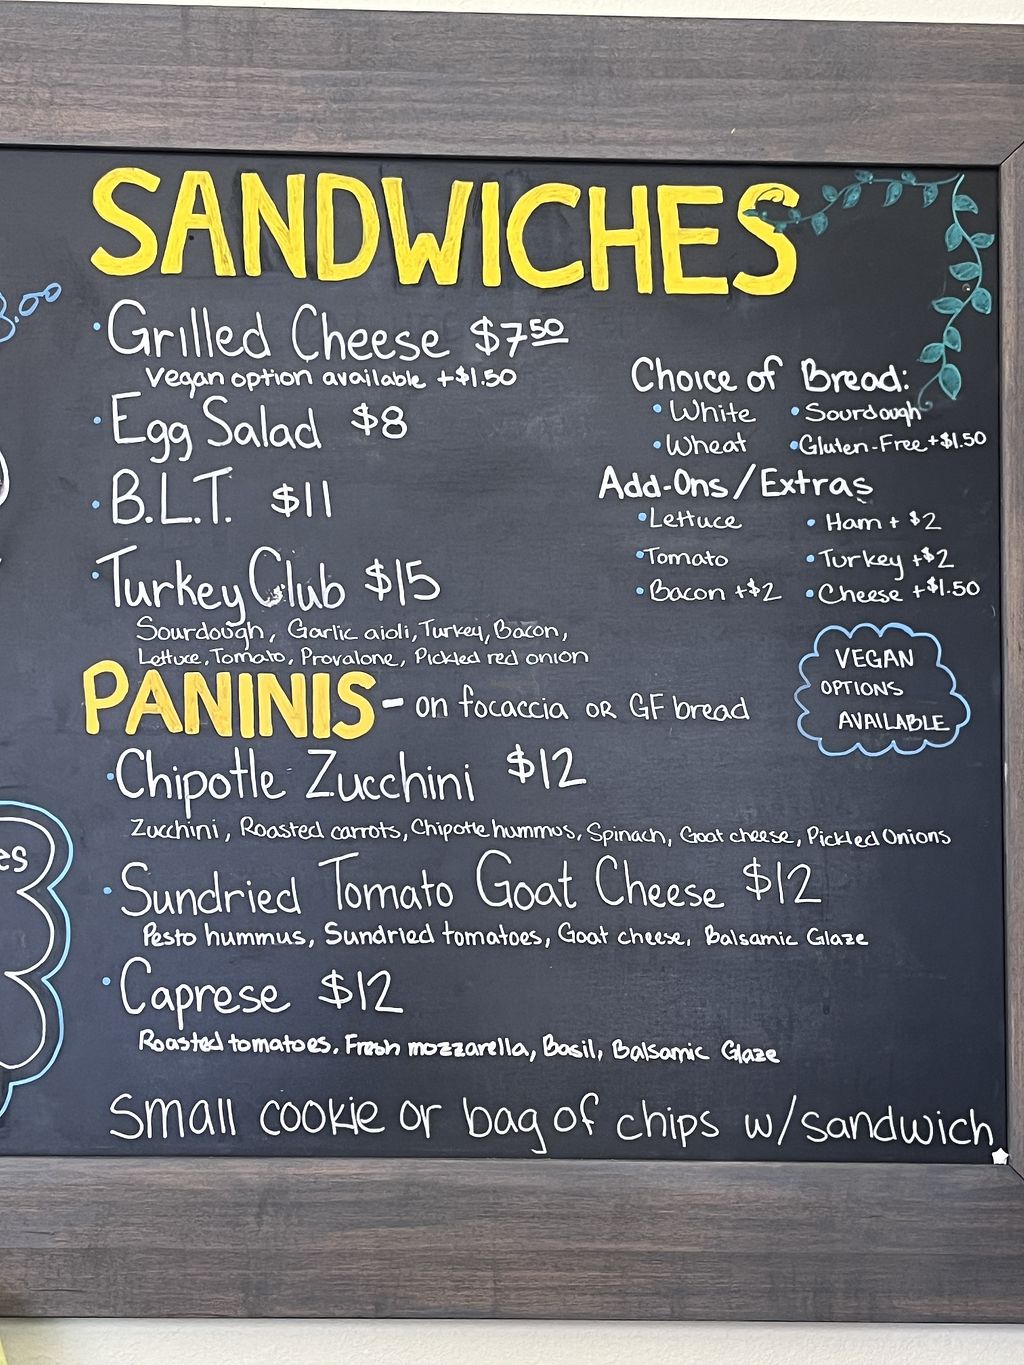 SANDWICHES
8.00
• Grilled Cheese $7.50
Vegan option available +$1.50
• Egg Salad $8
• B.L.T. $11
• Turkey Club $15
Sourdough, Garlic aioli, Turkey, Bacon,
Lettuce, Tomato, Provalone, Pickled red onion
Choice of Bread:
• White • Sourdough
• Wheat • Gluten-Free +$1.50
Add-Ons/Extras
• Lettuce • Ham + $2
• Tomato • Turkey +$2
• Bacon +$2 • Cheese +$1.50
VEGAN
OPTIONS
AVAILABLE
PANINIS - on focaccia OR GF bread
• Chipotle Zucchini $12
Zucchini, Roasted carrots, Chipotle hummus, Spinach, Goat cheese, Pickled Onions
• Sundried Tomato Goat Cheese $12
Pesto hummus, Sundried tomatoes, Goat cheese, Balsamic Glaze
• Caprese $12
Roasted tomatoes, Fresh mozzarella, Basil, Balsamic Glaze
es
Small cookie or bag of chips w/sandwich